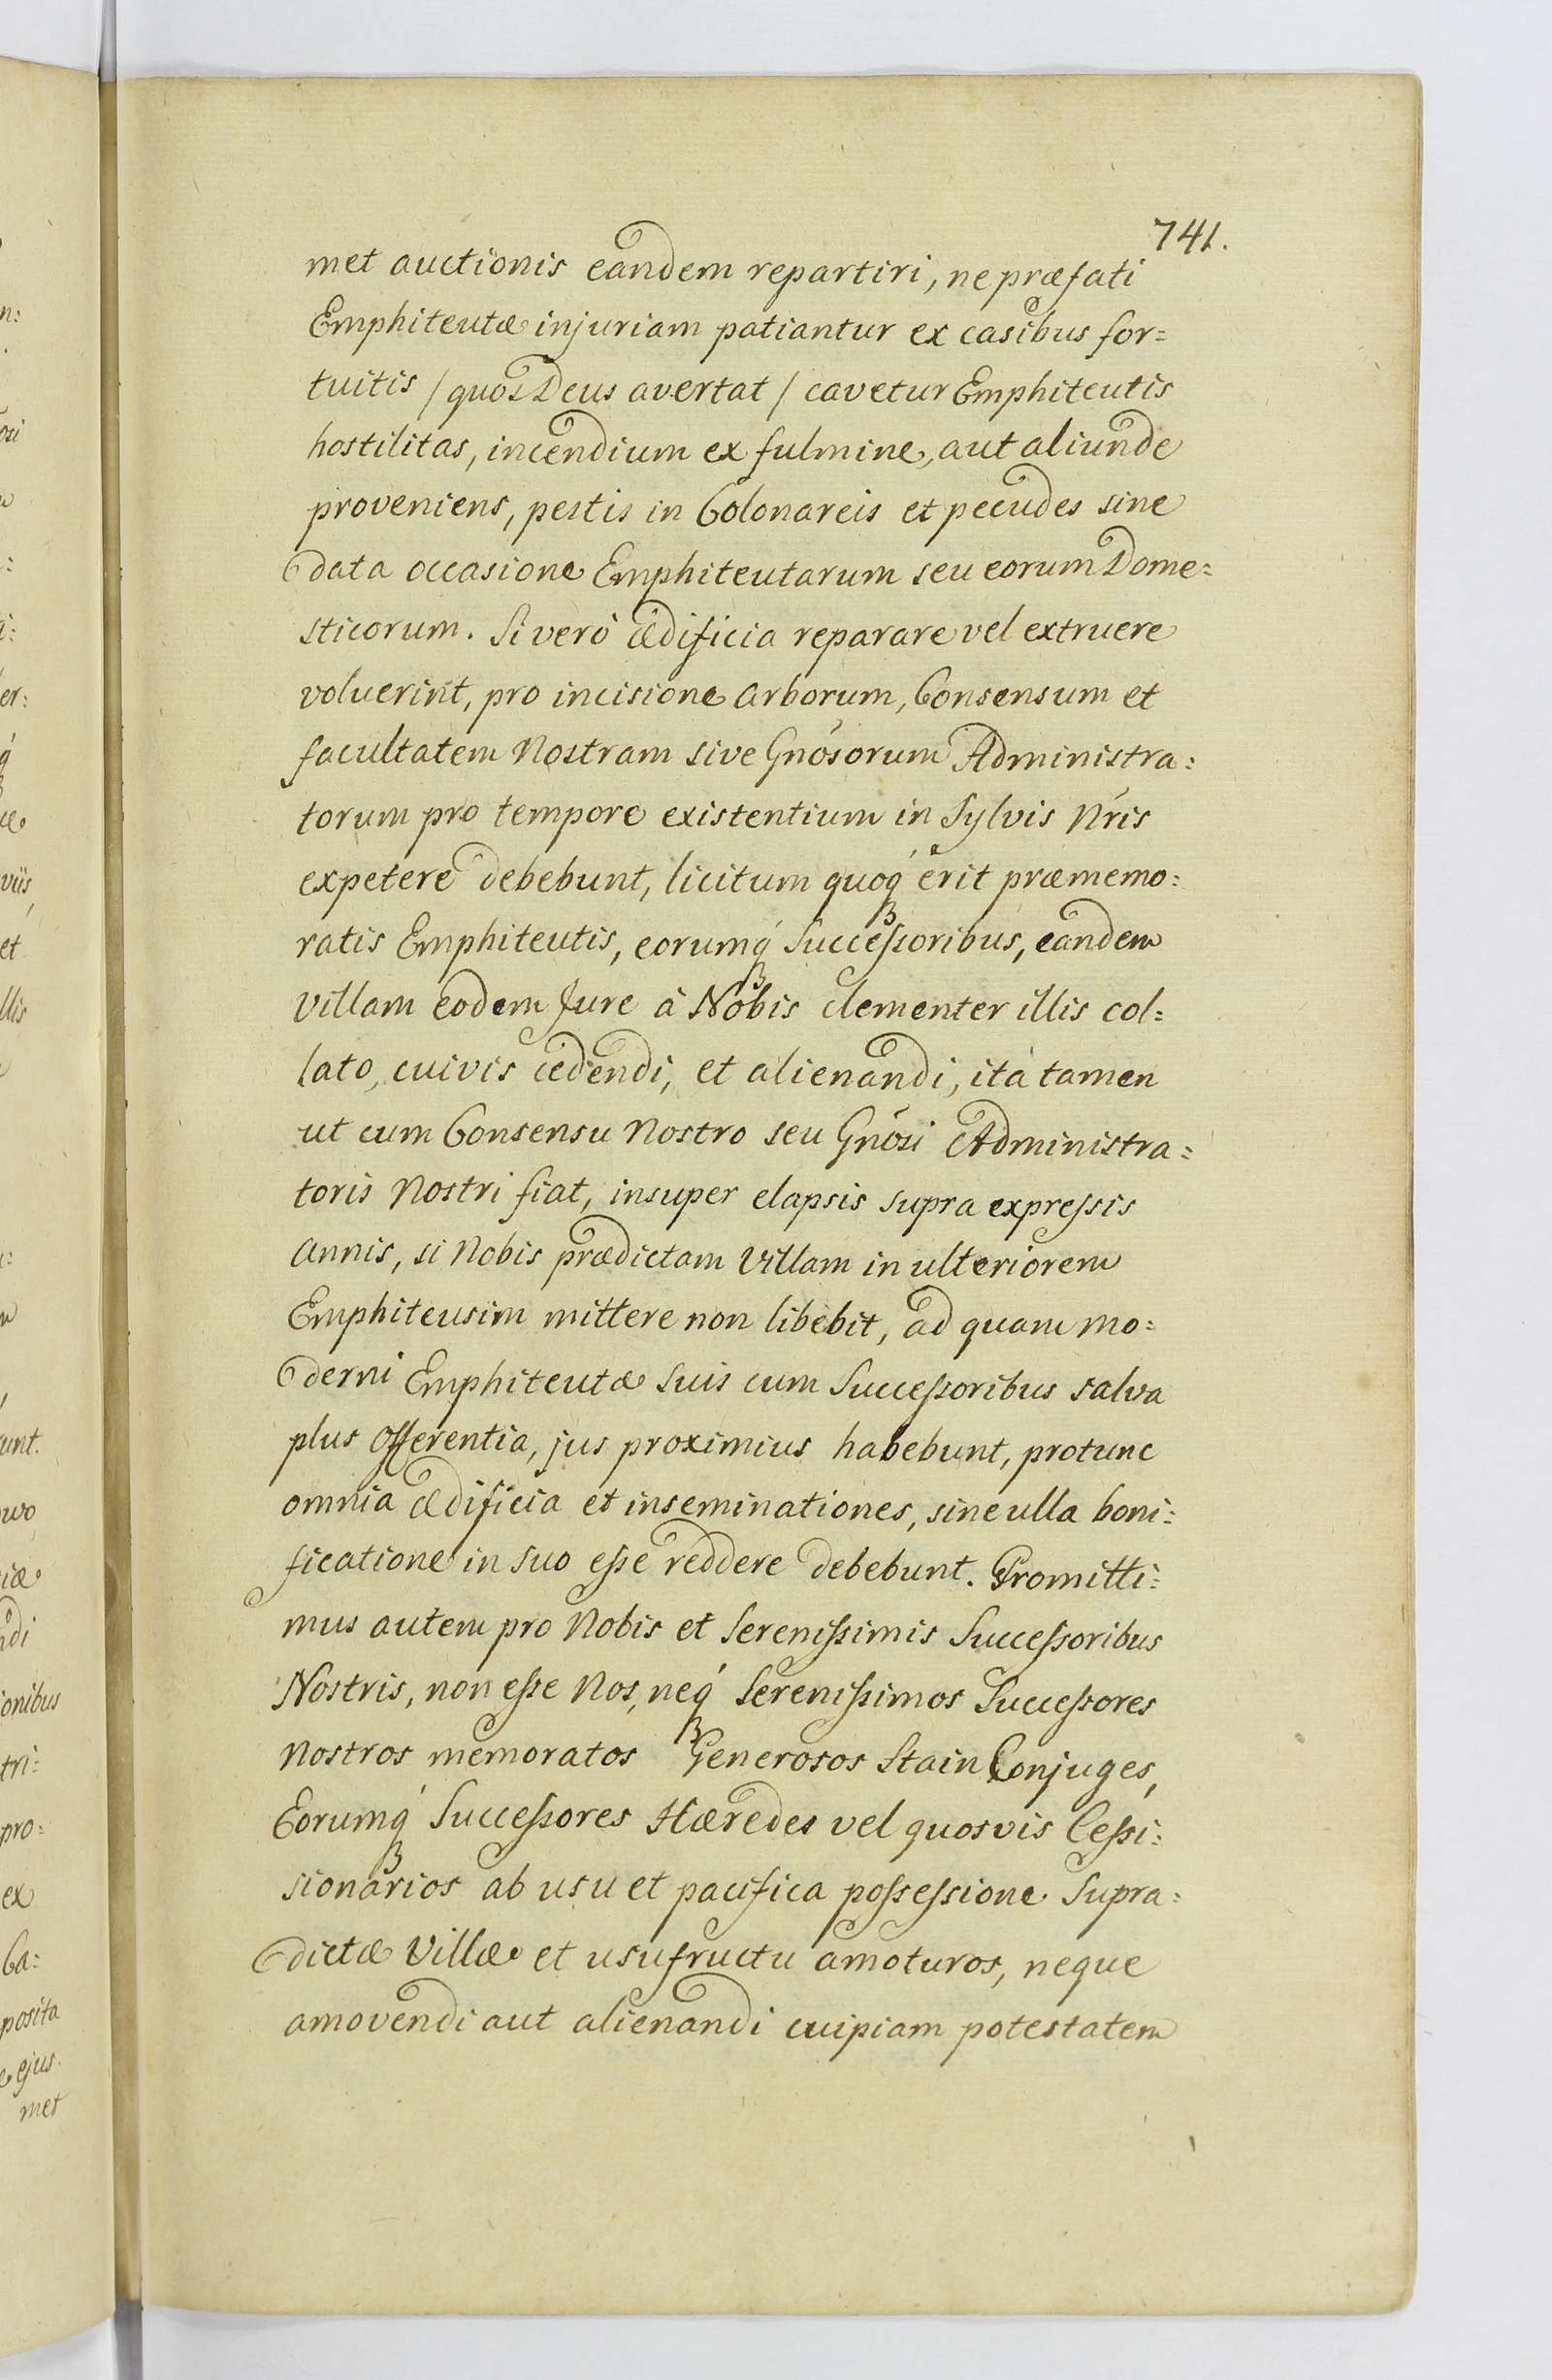 741.
met auctionis eandem repartiri, ne præfati
Emphiteutæ injuriam patiantur ex casibus for=
tuitis / quos Deus avertat / cavetur Emphiteutis
hostilitas, incendium ex fulmine, aut aliunde
proveniens, pestis in Colonareis et pecudes sine
data occasione Emphiteutarum seu eorum Dome=
sticorum. Si verò ædificia reparare vel extruere
voluerint, pro incisione Arborum, Consensum et
facultatem Nostram sive Gnósorum Administra=
torum pro tempore existentium in Sylvis Nris
expetere debebunt, licitum quoq́ erit præmemo=
ratis Emphiteutis, eorumq́ Successoribus, eandem
Villam eodem Jure à Nobis clementer illis col=
lato, cuivis cedendi, et alienandi, ità tamen
ut cum Consensu Nostro seu Gnósi Administra=
toris Nostri fiat, insuper elapsis supra expressis
Annis, si Nobis prædictam Villam in ulteriorem
Emphiteusim mittere non libebit, ad quam mo=
derni Emphiteutæ Suis cum Successoribus salva
plus Offerentia, jus proximius habebunt, protunc
omnia ædificia et inseminationes, sine ulla boni=
ficatione in Suo esse reddere debebunt. Promitti=
mus autem pro Nobis et Serenissimis Successoribus
Nostris, non esse Nos, neq́ Serenissimos Successores
Nostros memoratos Generosos Stain Conjuges,
Eorumq́ Successores Hæredes vel quosvis Cessi=
sionarios ab usu et pacifica possessione Supra=
dictæ Villæ et usufructu amoturos, neque
amovendi aut alienandi cuipiam potestatem
n:
er:
viis,
et
llis
unt.
ndi
ionibus
tri=
pro=
ex
Ca=
posita
ejus
met